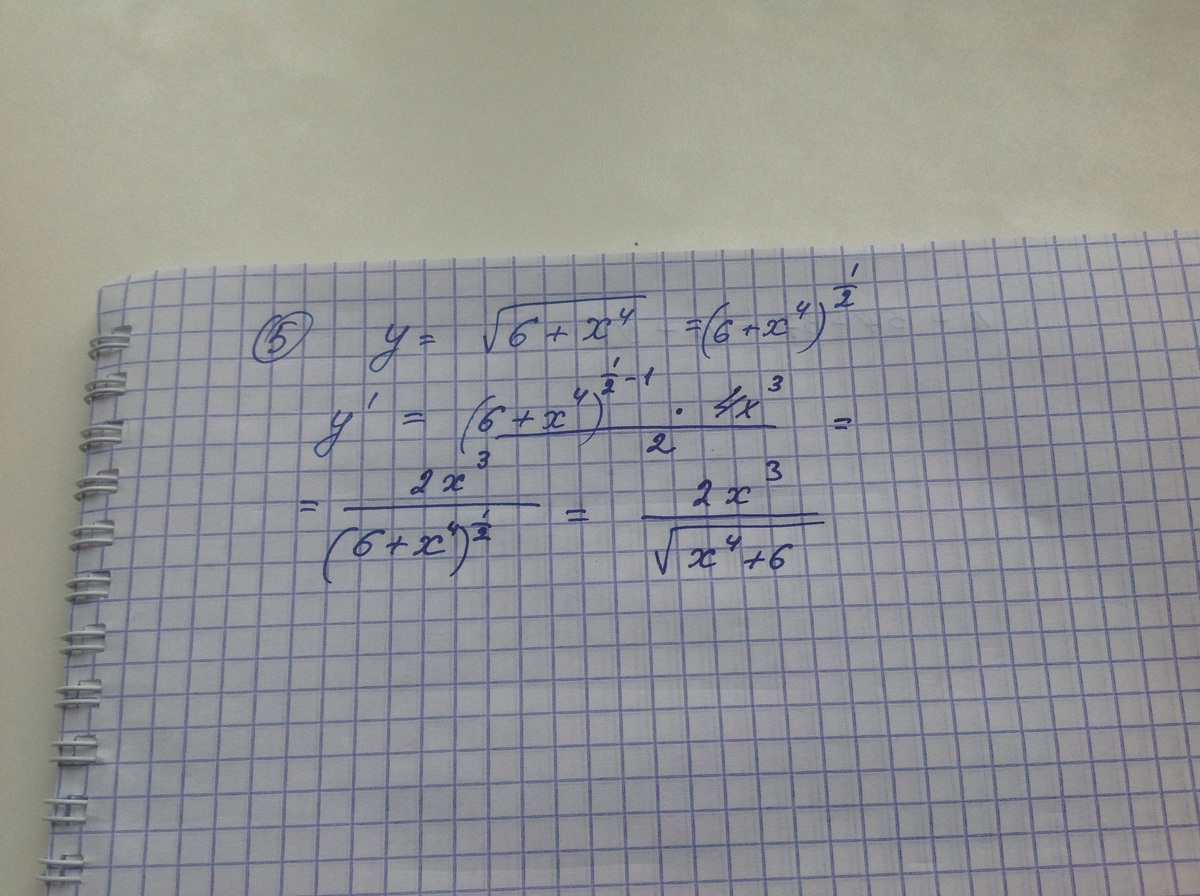 ⑤ y = √(6 + x⁴) = (6 + x⁴)^(1/2)
y' = ((6 + x⁴)^(1/2 - 1) · 4x³)/2 =
= 2x³/(6 + x⁴)^(1/2) = 2x³/√(x⁴ + 6)